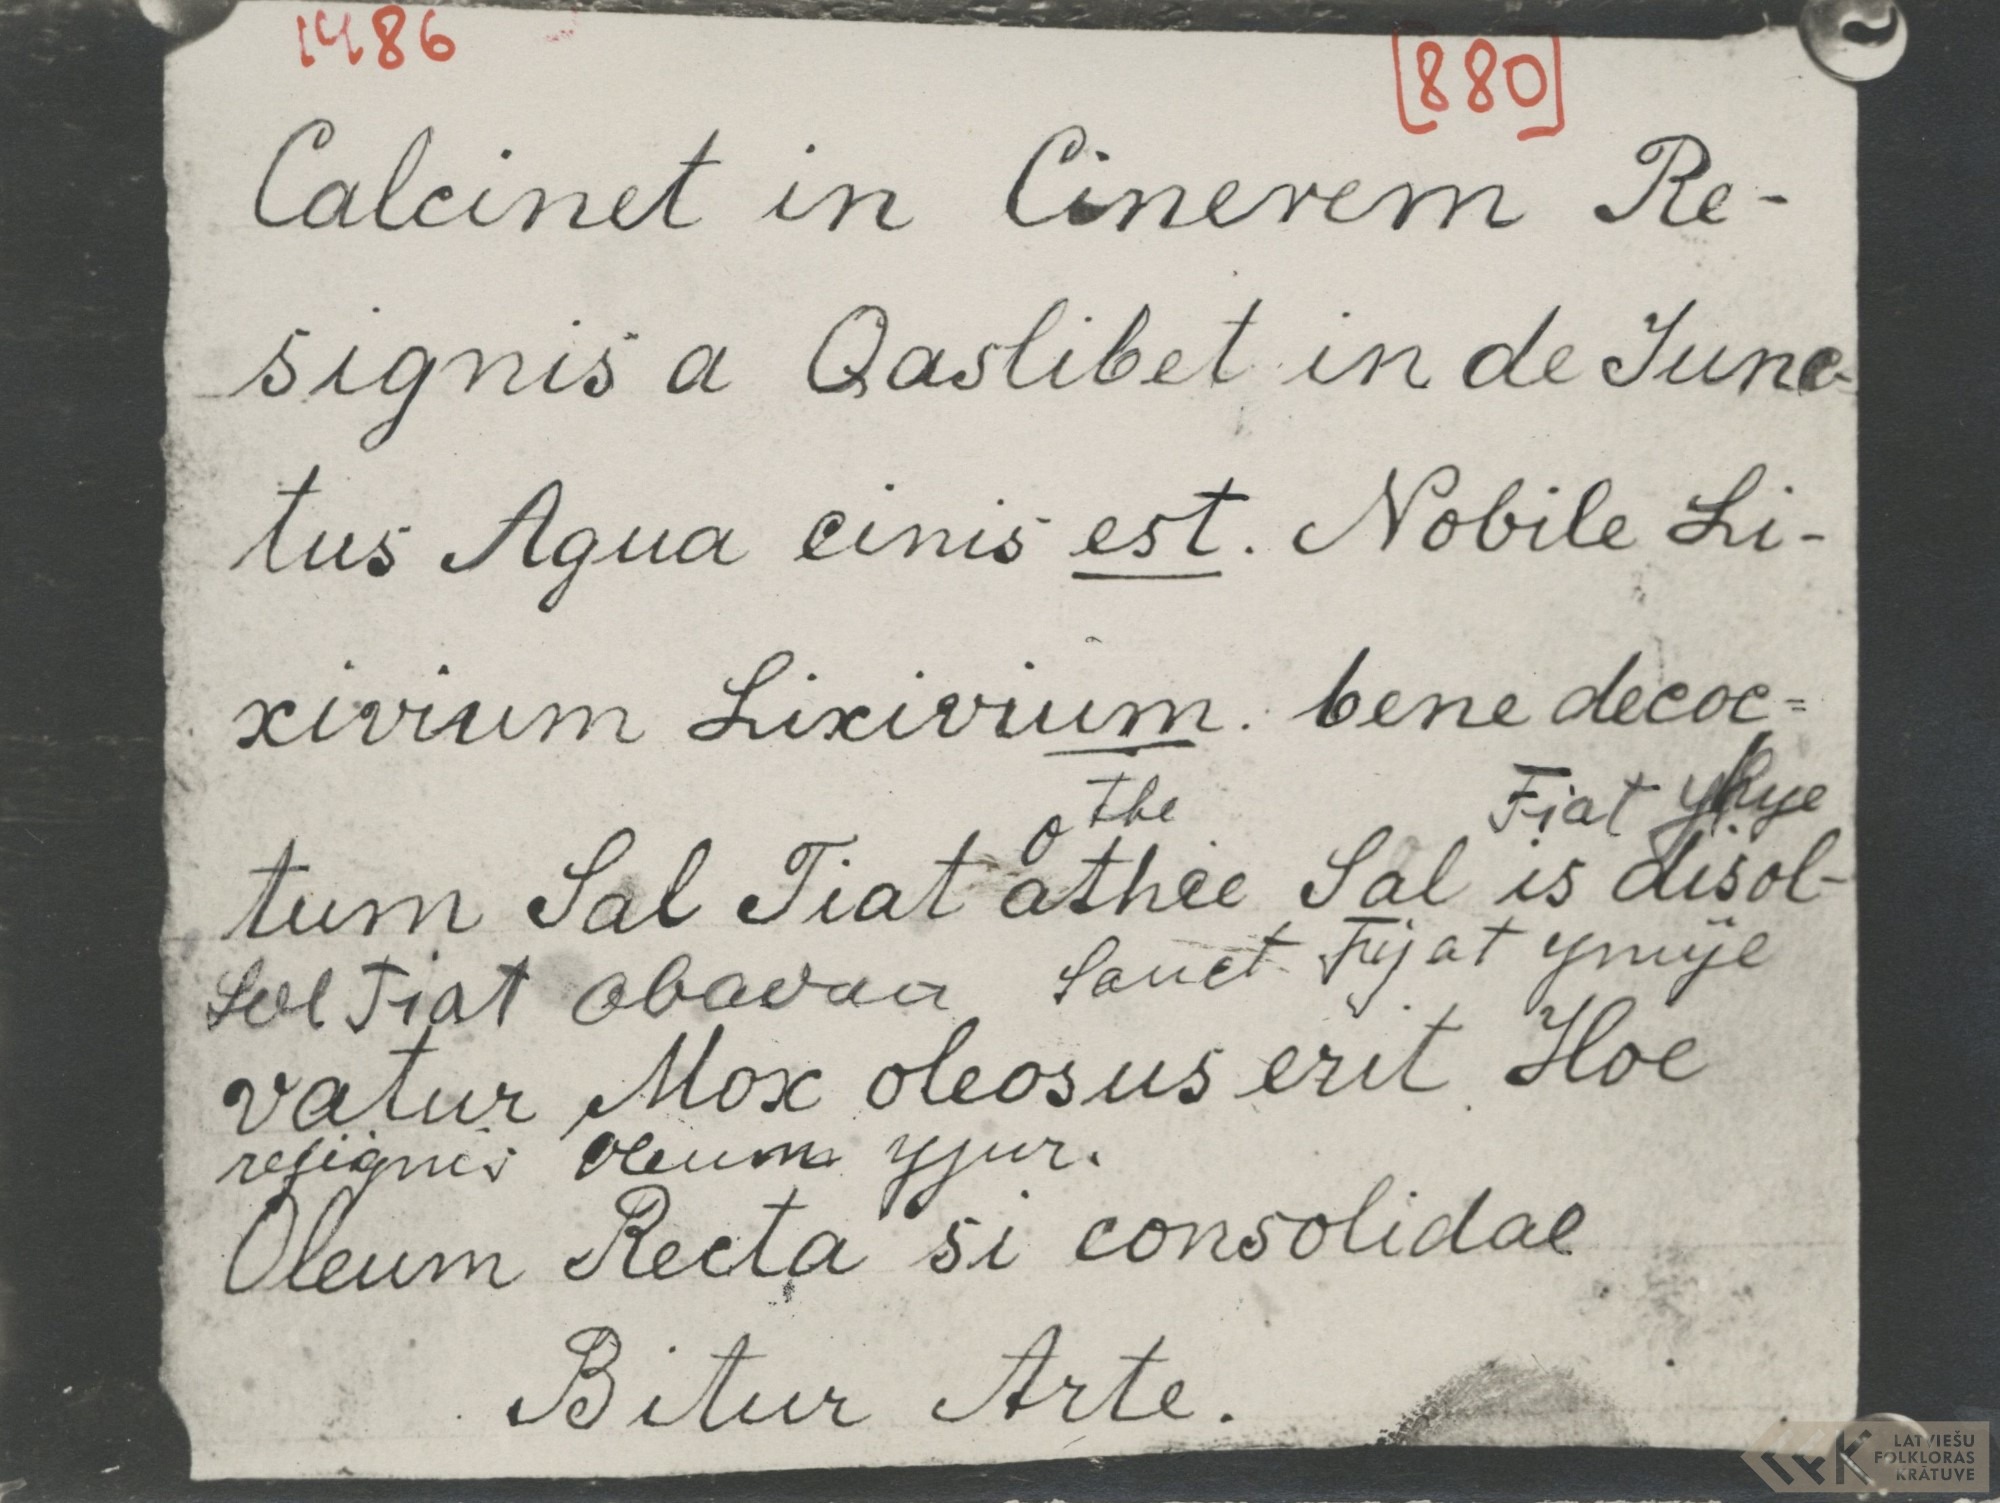 1486
[880]
Calcinet in Cinerem Re-
signis a Qaslibet in de Junc-
tus Agua cinis est. Nobile Li-
xivium Lixivium. bene decoc=
o the Fiat
tum Sal Tiat athee Sal is disol-
Sol Fiat obavaa Sanct Fijat ymije
vatur Mox oleosus erit Hoc
resignis oleum yjur.
Oleum Recta si consolidae
Bitur Arte.
LATVIEŠU
FOLKLORAS
KRĀTUVE